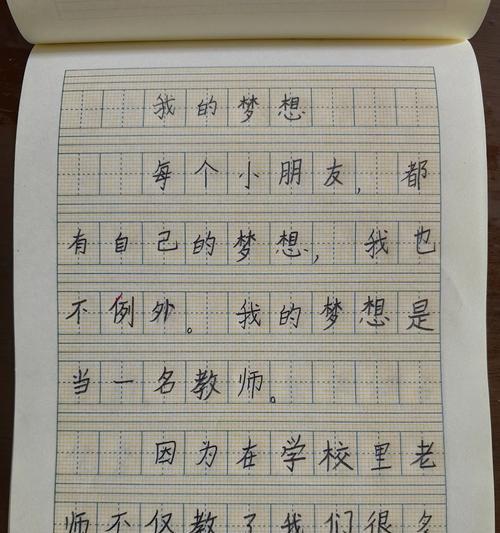 我的梦想
每个小朋友，都
有自己的梦想，我也
不例外。我的梦想是
当一名教师。
因为在学校里老
师不仅教了我们很多